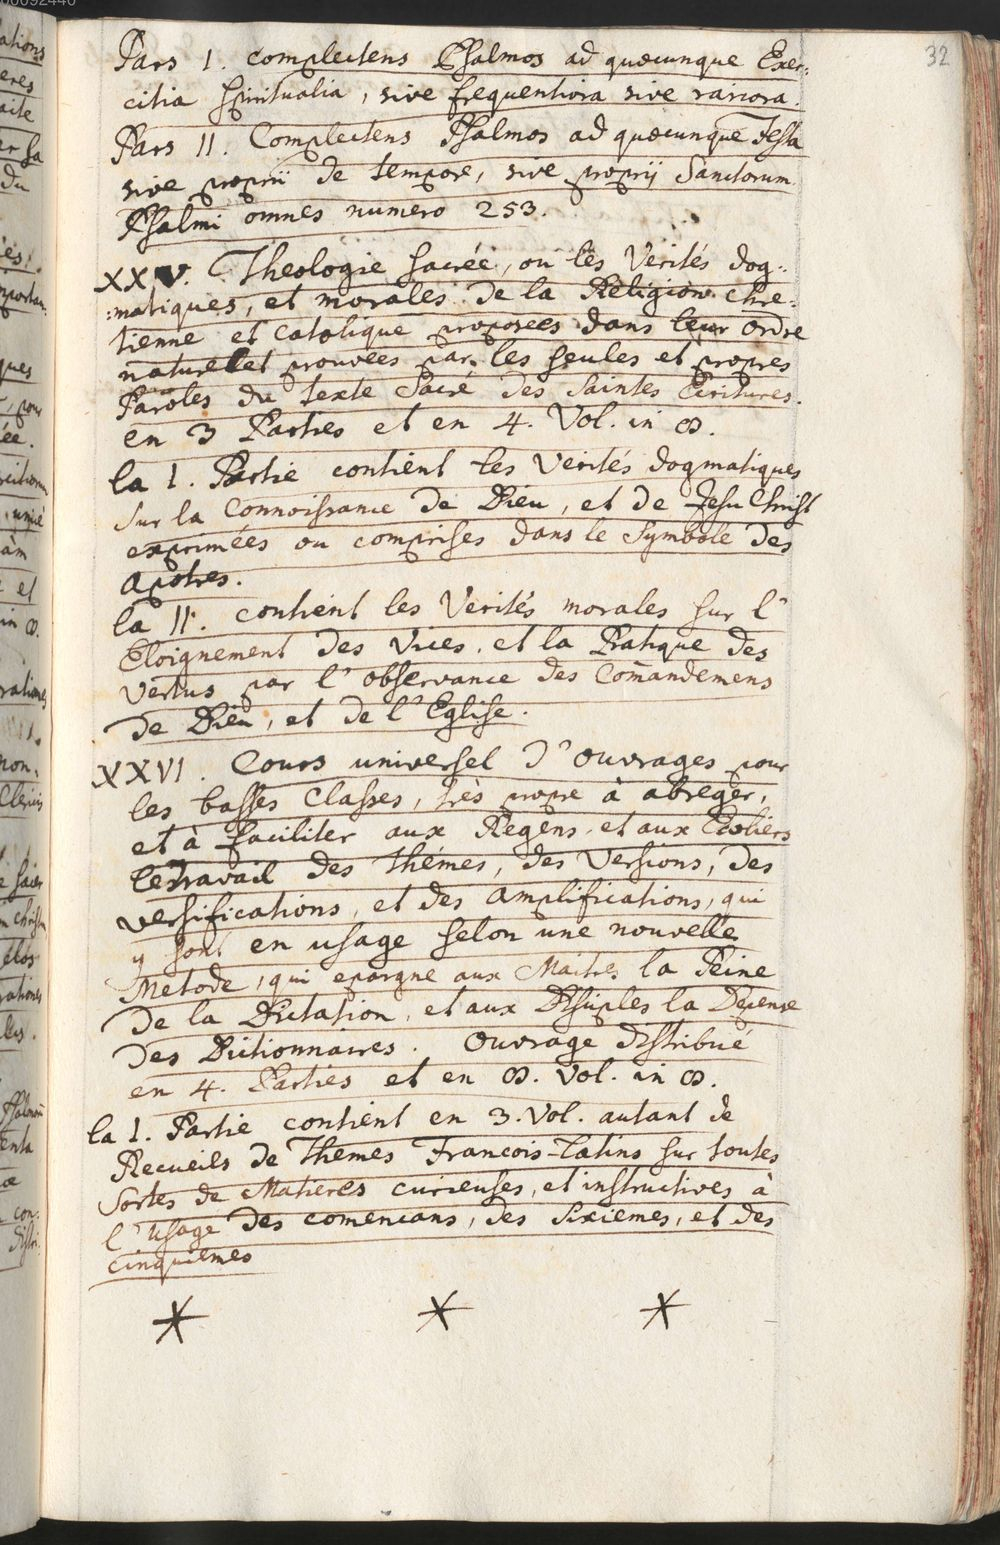 32
Pars I. complectens Psalmos ad quæcunque Exer:
citia spiritualia, sive frequentiora sive rariora.
Pars II. Complectens Psalmos ad quæcunque Festa
sive proprii de tempore, sive proprij Sanctorum.
Psalmi omnes numero 253.
XXV. Theologie Sacrée, ou les Verités dog:
:matiques, et morales de la Religion Chre:
tienne et Catolique proposées dans leur ordre
naturel et prouvées par les seules et propres
Paroles du texte Sacré des Saintes Ecritures.
en 3 Parties et en 4. Vol. in 8.
la I. Partie contient les Verités dogmatiques
sur la Connoissance de Dieu, et de Jesu Christ
exprimées ou comprises dans le Symbole des
apotres.
la II. contient les Verités morales sur l'
Eloignement des Vices, et la Pratique des
Vertus par l'observance des Comandemens
de Dieu, et de l'Eglise.
XXVI. Cours universel d'ouvrages pour
les basses Classes, très propre à abreger,
et à faciliter aux Regens et aux Ecoliers
le travail des Thémes, des Versions, des
versifications, et des amplifications, qui
y sont en usage selon une nouvelle
Metode, qui epargne aux Maitres la Peine
de la Dictation, et aux Disciples la Depense
des Dictionnaires. Ouvrage distribué
en 4. Parties et en 8. Vol. in 8.
la I. Partie contient en 3. Vol. autant de
Recueils de Themes Francois-Latins sur toutes
Sortes de Matieres curieuses, et instructives à
l'usage des comencans, des Sixiemes, et des
cinquiemes
* * *